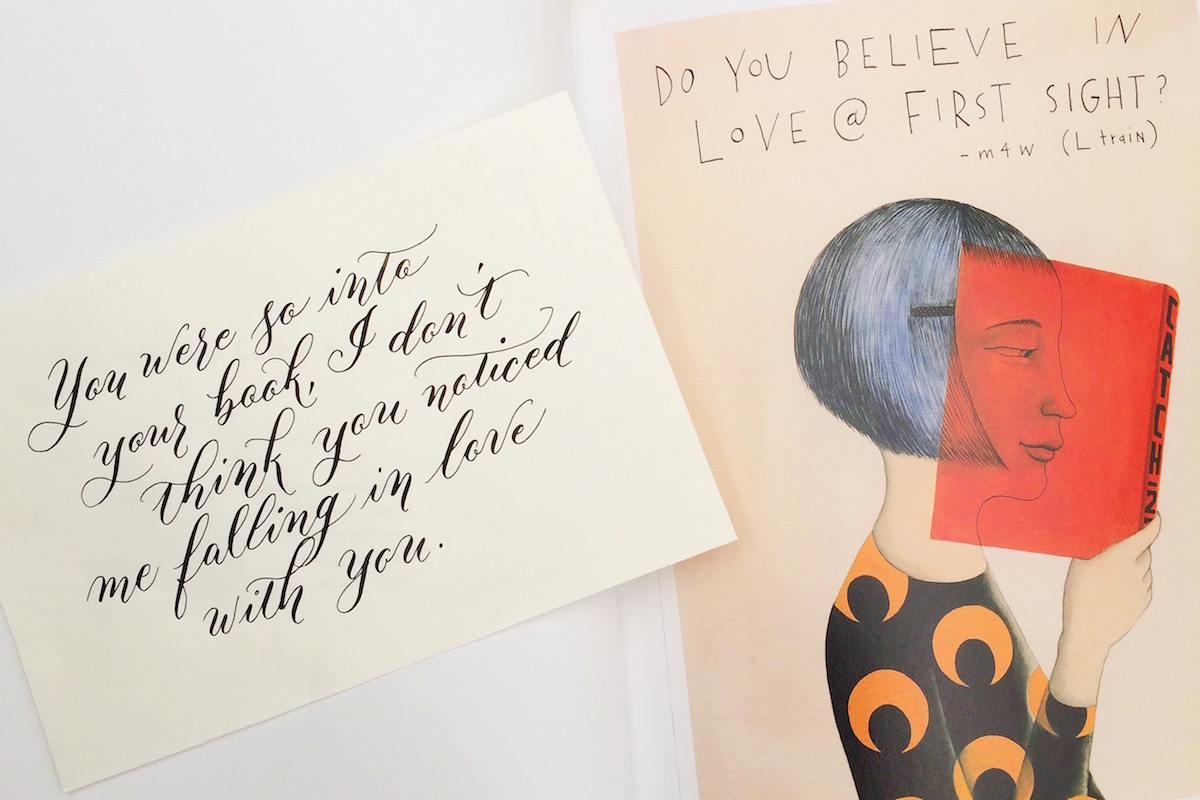 You were so into
your book, I don't
think you noticed
me falling in love
with you.
DO YOU BELIEVE IN
LOVE @ FIRST SIGHT?
- m4w (L traiN)
CATCH·22